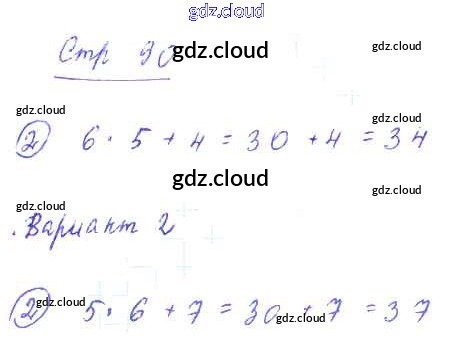 gdz.cloud
Стр 90
gdz.cloud gdz.cloud
gdz.cloud gdz.cloud
② 6 · 5 + 4 = 30 + 4 = 34
gdz.cloud gdz.cloud
gdz.cloud
Вариант 2
gdz.cloud gdz.cloud
② 5 · 6 + 7 = 30 + 7 = 37
gdz.cloud gdz.cloud
gdz.cloud